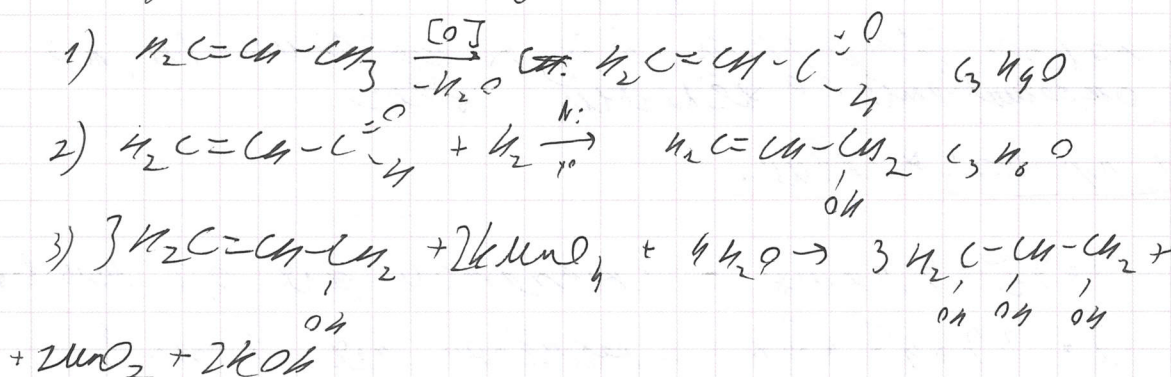 1) H₂C=CH-CH₃ [O] → -H₂O H₂C=CH-C=O -H C₃H₄O
2) H₂C=CH-C=O -H + H₂ Ni → t° H₂C=CH-CH₂ OH C₃H₆O
3) 3H₂C=CH-CH₂ OH + 2KMnO₄ + 4H₂O → 3H₂C-CH-CH₂ + OH OH OH
+ 2MnO₂ + 2KOH